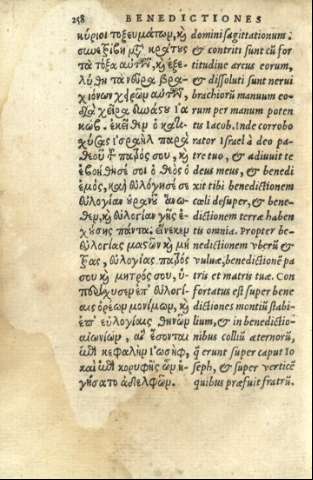 258 BENEDICTIONES
κύριοι τοξευμάτων, καὶ
συνετρίβη μετὰ κράτους
τὰ τόξα αὐτῶν, καὶ ἐξε-
λύθη τὰ νεῦρα βρα-
χιόνων χειρῶν αὐτῶν,
διὰ χεῖρα δυνάστου ἰα
κώβ. ἐκεῖθεν ὁ κατισ-
χύσας ἰσραὴλ παρὰ
θεοῦ τοῦ πατρός σου, καὶ
ἐβοήθησέ σοι ὁ θεὸς ὁ
ἐμὸς, καὶ εὐλόγησέ σε
εὐλογίαν οὐρανοῦ ἄνω-
θεν, καὶ εὐλογίαν γῆς ἐ-
χούσης πάντα. εἵνεκεν
εὐλογίας μαστῶν καὶ μή
τρας, εὐλογίας πατρός
σου καὶ μητρός σου, ὑ-
περίσχυσεν ἐπ' εὐλογί-
αις ὀρέων μονίμων, καὶ
ἐπ' εὐλογίαις θινῶν
αἰωνίων, αἳ ἔσονται
ἐπὶ κεφαλὴν ἰωσὴφ,
καὶ ἐπὶ κορυφῆς ὧν ἡ-
γήσατο ἀδελφῶν.
domini sagittationum.
& contriti sunt cū for
titudine arcus eorum,
& dissoluti sunt nerui
brachiorū manuum eo-
rum per manum poten
tis Iacob. Inde corrobo
rator Israel à deo pa-
tre tuo, & adiuuit te
deus meus, & benedi
xit tibi benedictionem
cœli desuper, & bene-
dictionem terræ haben
tis omnia. Propter be-
nedictionem vberū &
vuluæ, benedictionē pa
tris et matris tuæ. Con
fortatus est super bene
dictiones montiū stabi
lium, & in benedictio-
nibus colliū æternorū,
q̄ erunt super caput Io
seph, & super verticē
quibus præfuit fratrū.